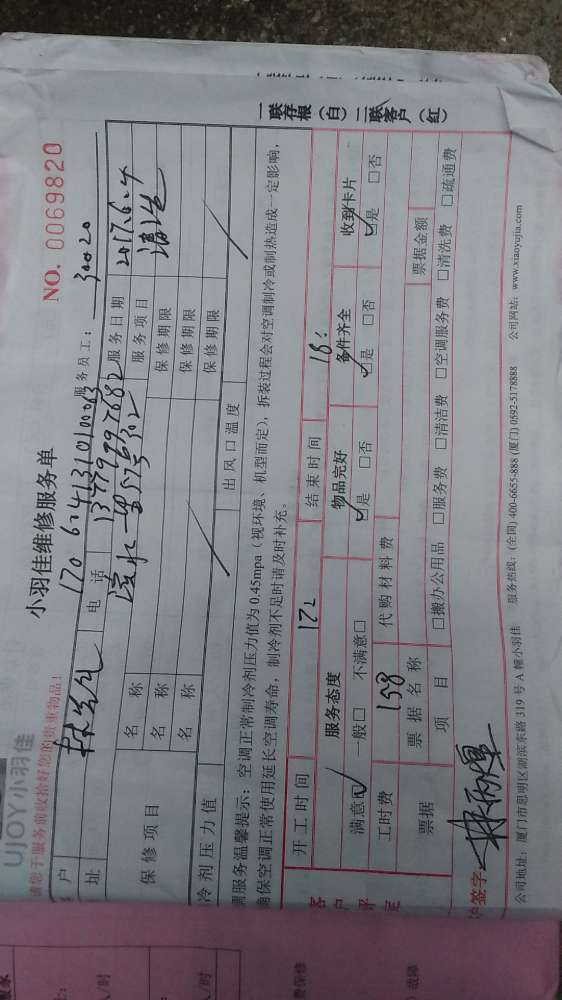 UJOY小羽佳
请您于服务前收拾好您的贵重物品!
小羽佳维修服务单
NO. 0069820
户
服务员工: 30020
址
电 话 13779997682 服务日期 2017.6.4
保修项目 名 称 服务项目
名 称 保修期限
名 称 保修期限
保修期限
冷剂压力值 出风口温度
调服务温馨提示: 空调正常制冷剂压力值为0.45mpa(视环境、机型而定),拆装过程会对空调制冷或制热造成一定影响,
确保空调正常使用延长空调寿命,制冷剂不足时请及时补充。
开工时间 结束时间
客户评定
服务态度 物品完好 备件齐全 收到卡片
满意☑ 一般□ 不满意□ ☑是 □否 ☑是 □否 ☑是 □否
工时费 158 代购材料费
票据 票据名称 票据金额
项 目 □搬办公用品 □服务费 □清洁费 □空调服务费 □清洗费 □疏通费
户签字
公司地址: 厦门市思明区湖滨东路319号A幢小羽佳 服务热线: (全国) 400-6655-888 (厦门) 0592-5178888 公司网站: www.xiaoyujia.com
一联存根(白) 二联客户(红)
/时
/时
费保修
故障